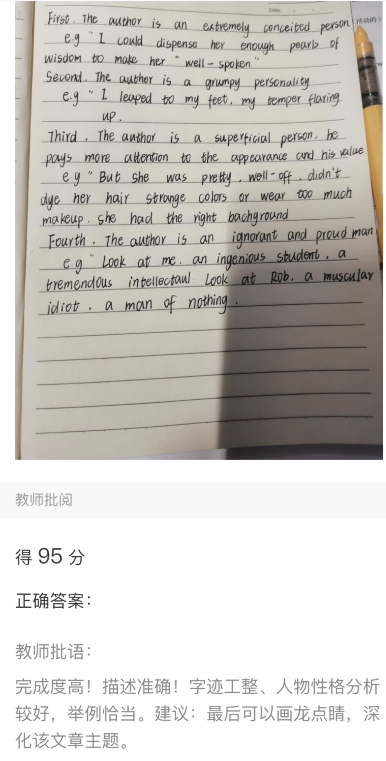 First. The author is an extremely conceited person
e.g " I could dispense her enough pearls of
wisdom to make her " well-spoken "
Second. The author is a grumpy personality
e.g " I leaped to my feet, my temper flaring
up.
Third. The author is a superficial person. he
pays more attention to the appearance and his value
eg " But she was pretty, well-off. didn't
dye her hair strange colors or wear too much
makeup. she had the right bachground
Fourth. The author is an ignorant and proud man
eg " Look at me. an ingenious student. a
tremendous intellectaul Look at Rob. a muscular
idiot. a man of nothing.
教师批阅
得 95 分
正确答案：
教师批语：
完成度高！描述准确！字迹工整、人物性格分析
较好，举例恰当。建议：最后可以画龙点睛，深
化该文章主题。